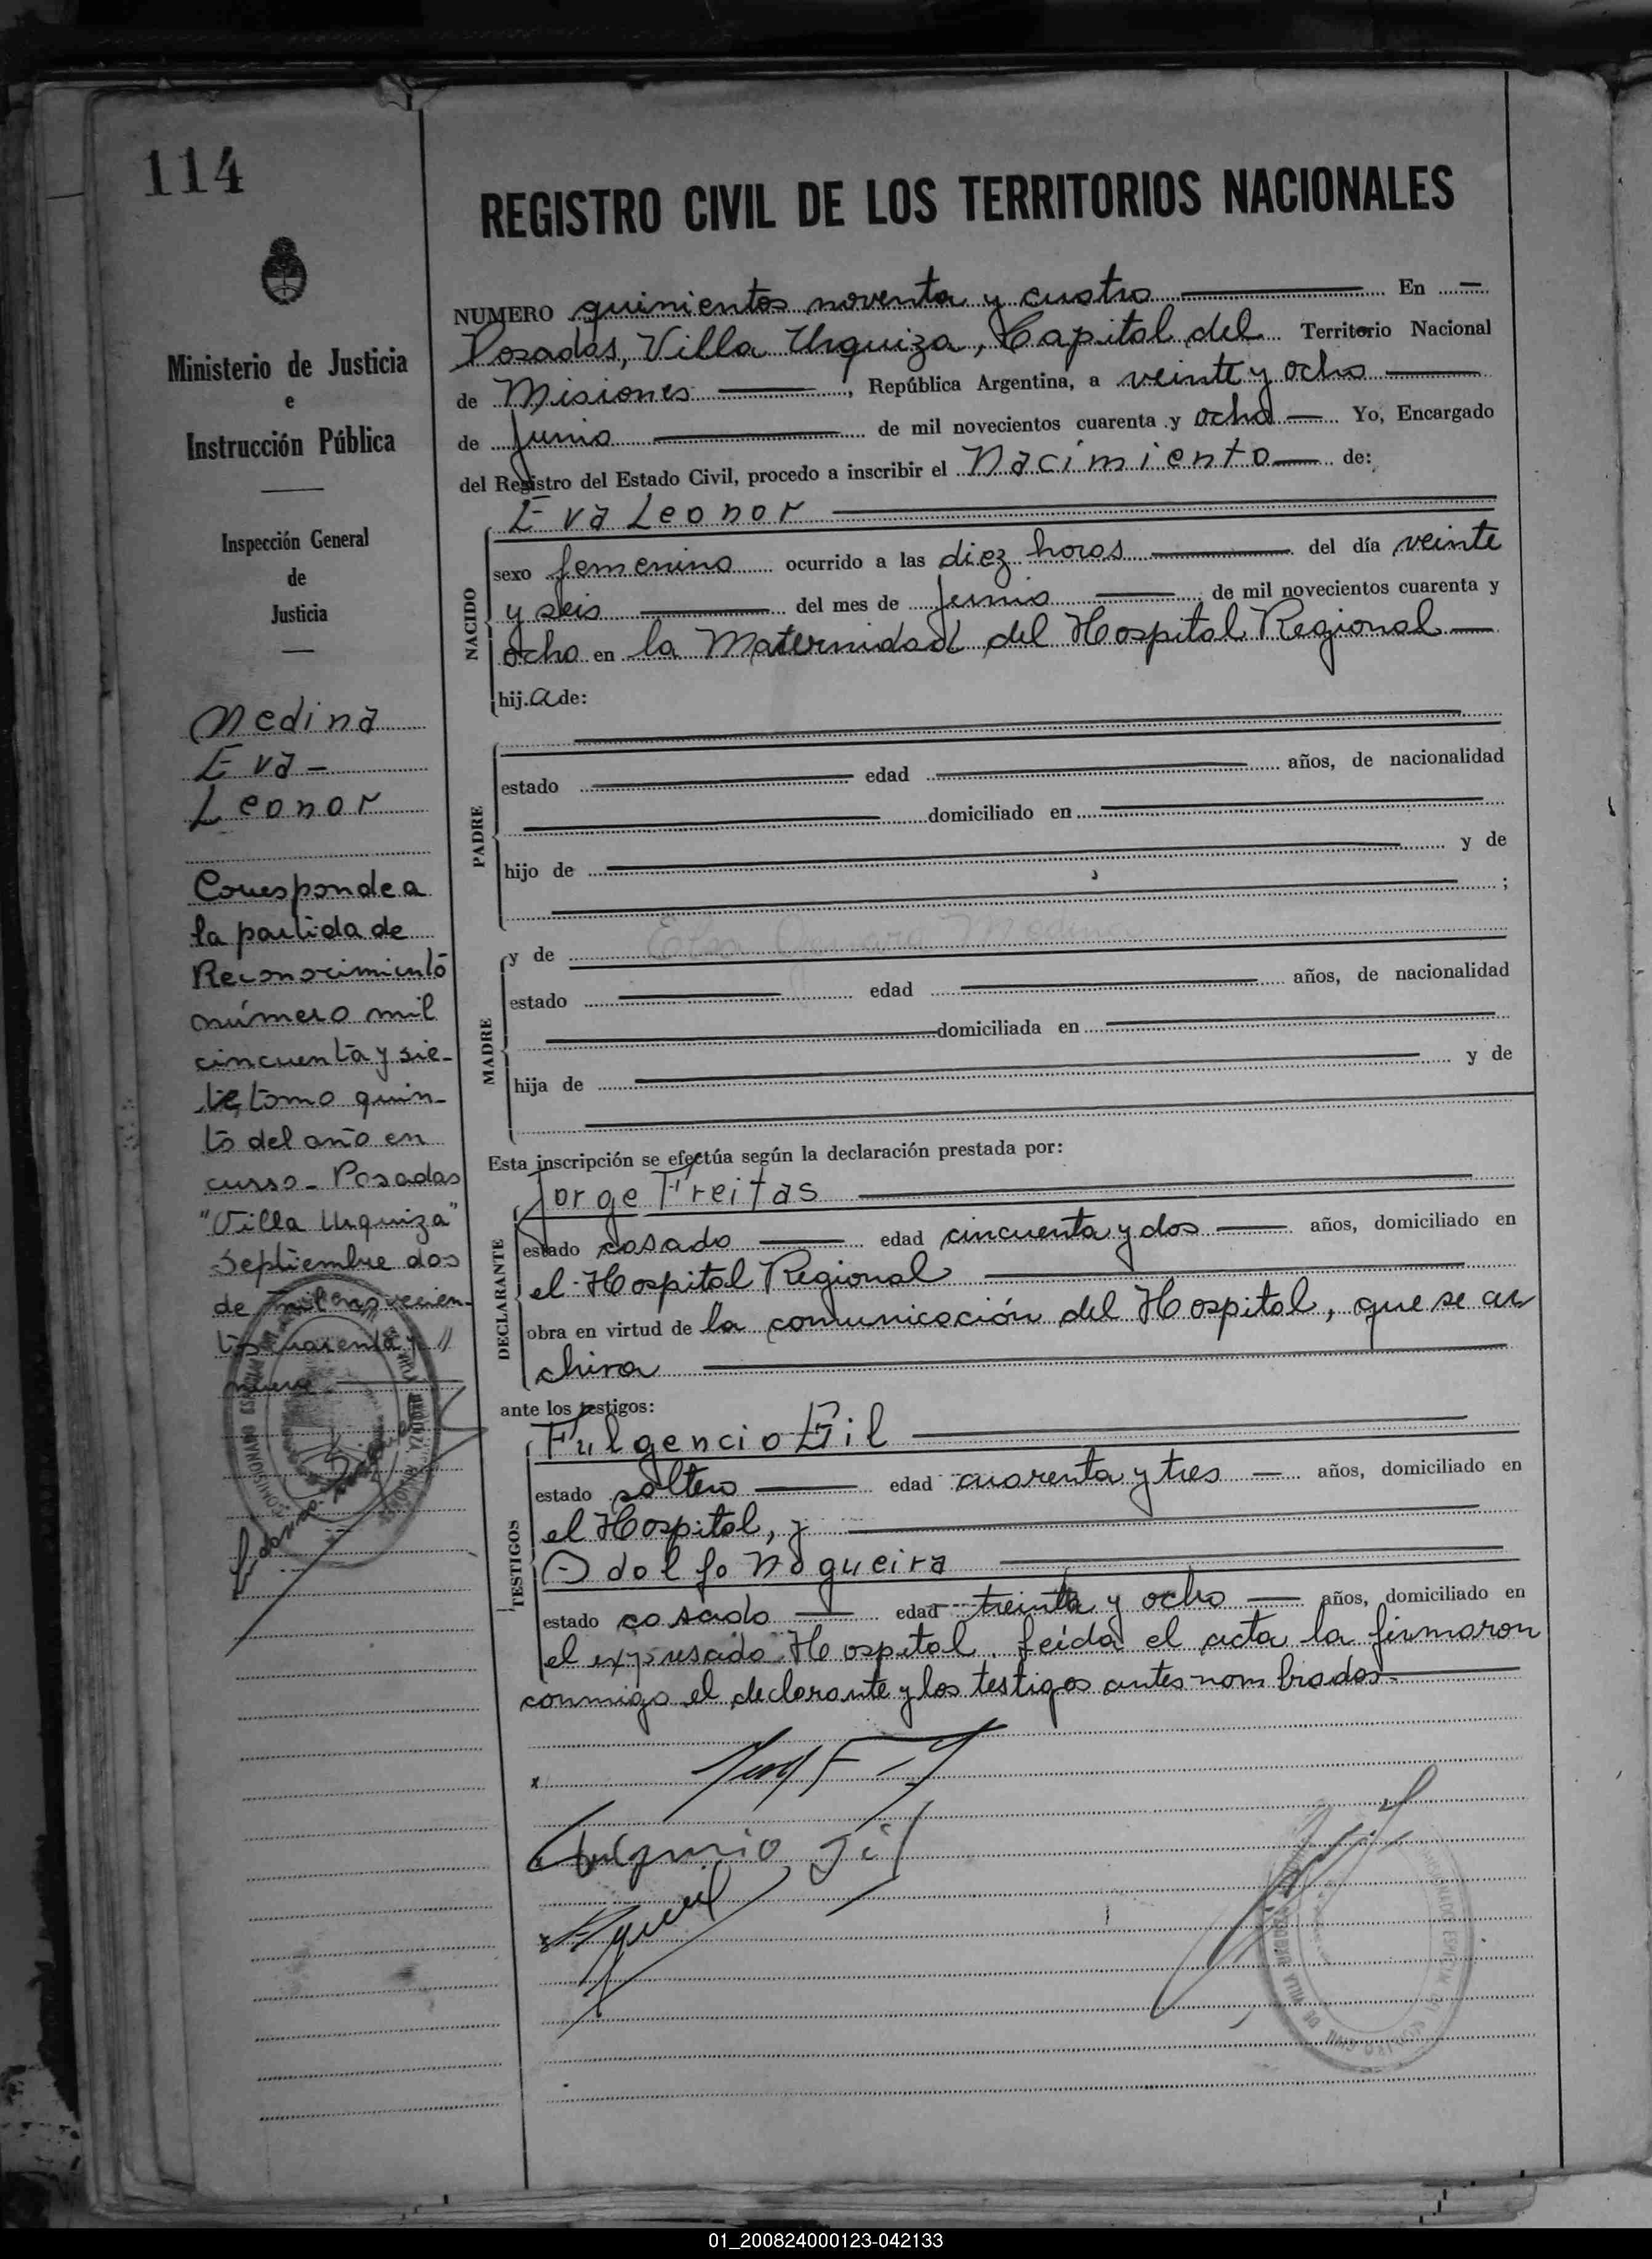 114
REGISTRO CIVIL DE LOS TERRITORIOS NACIONALES
Ministerio de Justicia
e
Instrucción Pública
Inspección General
de
Justicia
Medina
Eva
Leonor
Corresponde a
la partida de
Reconocimiento
número mil
cincuenta y sie-
te, tomo quin-
to del año en
curso - Posadas
"Villa Urquiza"
Septiembre dos
de mil novecien-
tos cuarenta y
nueve
NUMERO quinientos noventa y cuatro En
Posadas, Villa Urquiza, Capital del Territorio Nacional
de Misiones, República Argentina, a veinte y ocho
de Junio de mil novecientos cuarenta y ocho Yo, Encargado
del Registro del Estado Civil, procedo a inscribir el Nacimiento de:
Eva Leonor
NACIDO
sexo femenino ocurrido a las diez horas del día veinte
y seis del mes de Junio de mil novecientos cuarenta y
ocho en la Maternidad del Hospital Regional
hij.a de:
PADRE
estado edad años, de nacionalidad
domiciliado en
hijo de y de
;
MADRE
y de Elsa Medina
estado edad años, de nacionalidad
domiciliada en
hija de y de
Esta inscripción se efectúa según la declaración prestada por:
Jorge Freitas
DECLARANTE
estado casado edad cincuenta y dos años, domiciliado en
el Hospital Regional
obra en virtud de la comunicación del Hospital, que se ar
chiva
ante los testigos:
Fulgencio Gil
TESTIGOS
estado soltero edad cuarenta y tres años, domiciliado en
el Hospital, y
Adolfo Nogueira
estado casado edad treinta y ocho años, domiciliado en
el expresado Hospital. Leída el acta la firmaron
conmigo el declarante y los testigos antes nombrados.
Fulgencio Gil
01_200824000123-042133